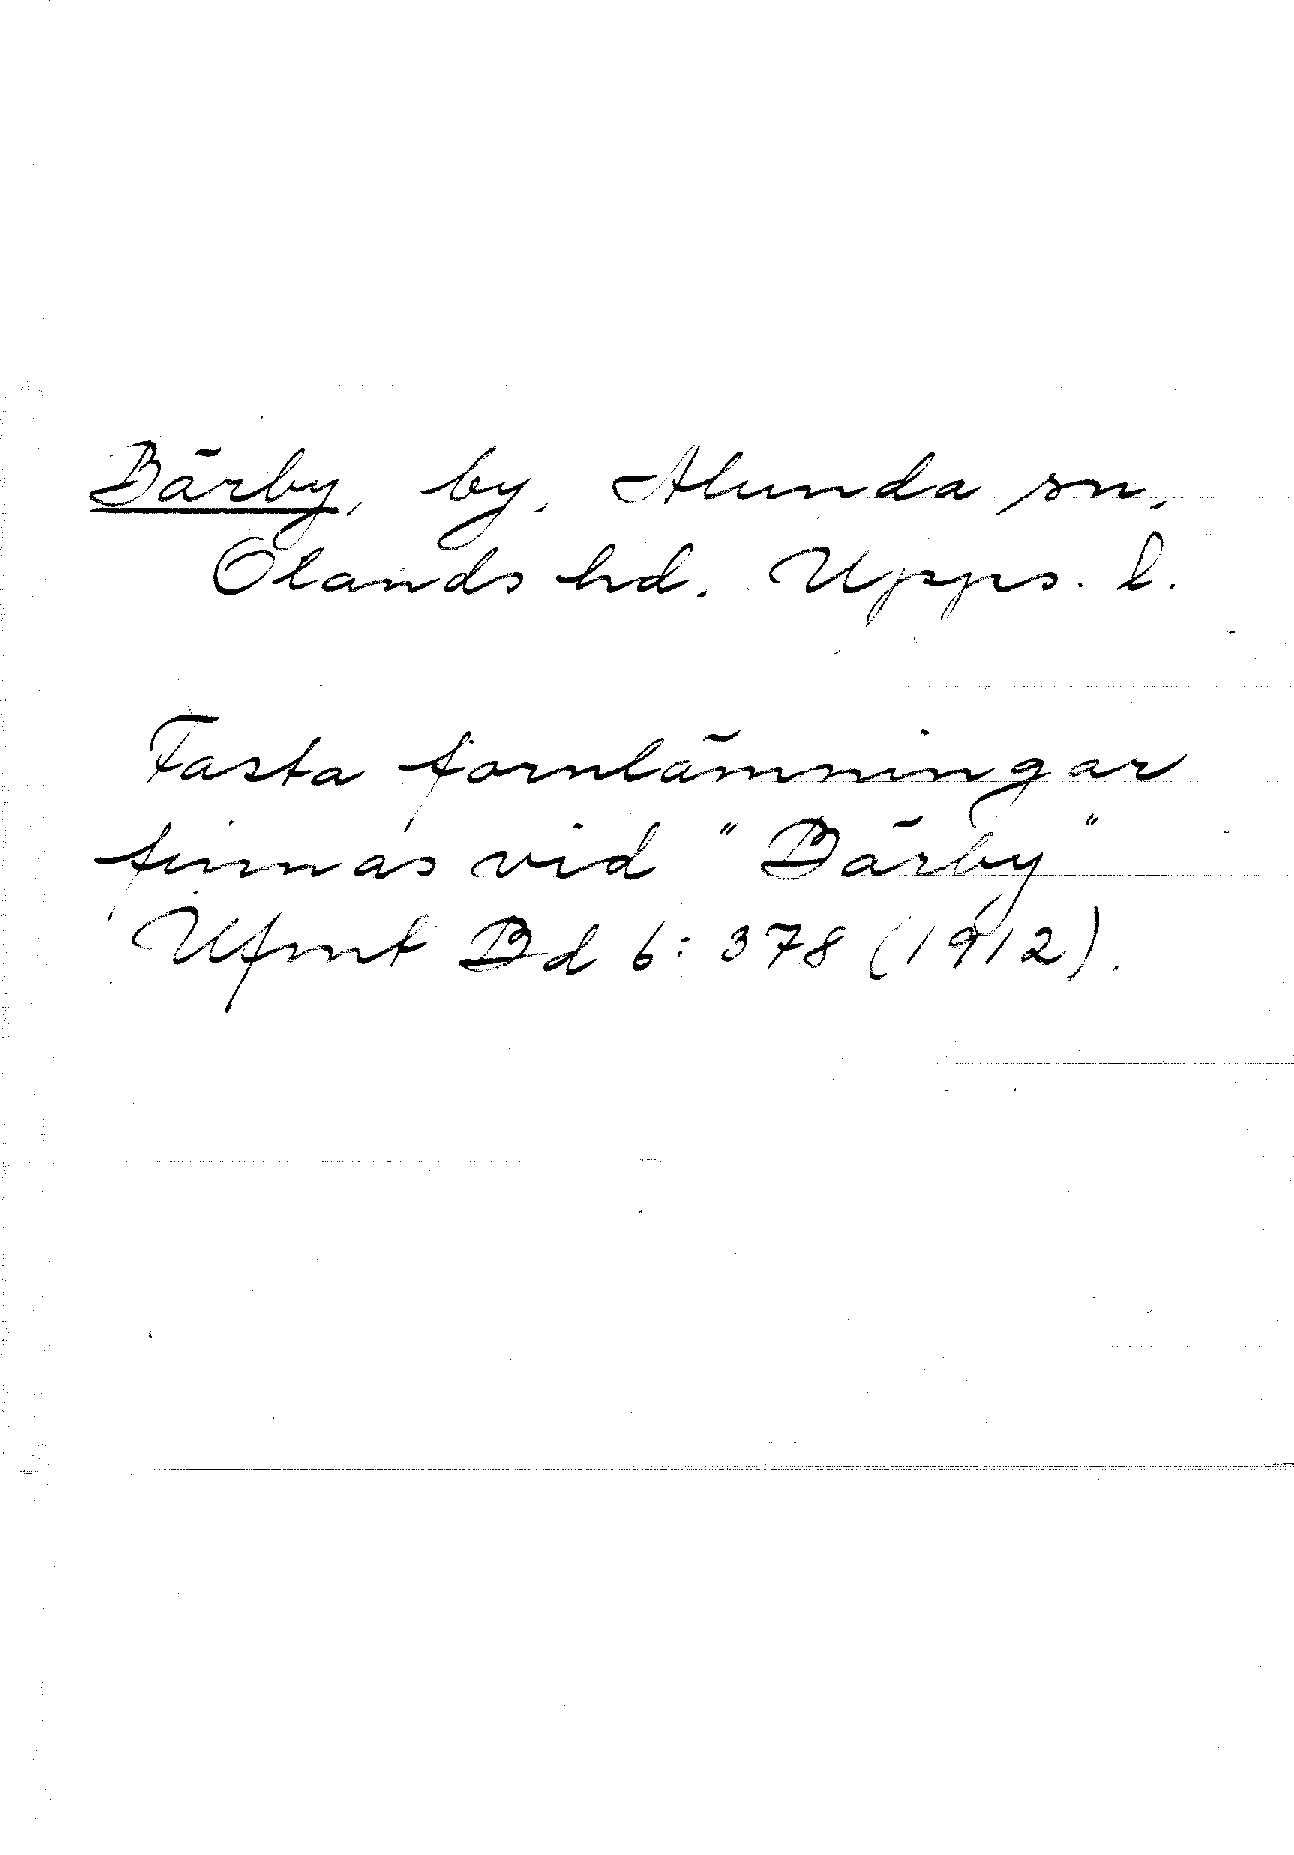 Bärby, by, Alunda sn,
Olands hd. Upps. l.
Fasta fornlämningar
finnas vid "Bärby"
Ufmt Bd 6: 378 (1912).